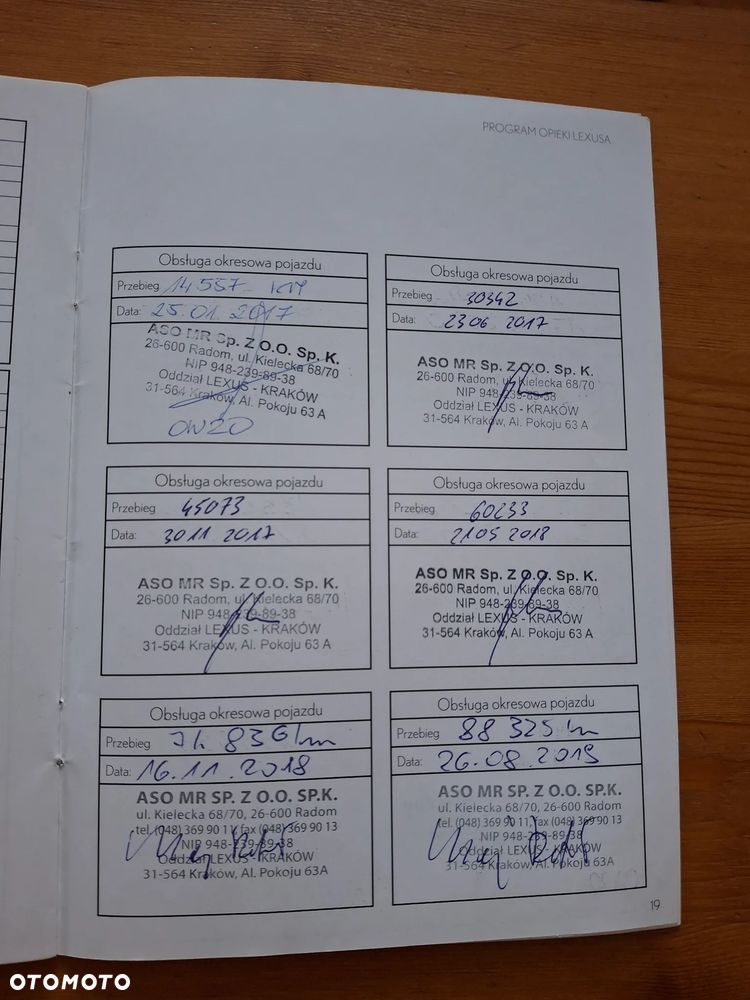 PROGRAM OPIEKI LEXUSA
Obsługa okresowa pojazdu
Przebieg 14 557 KM
Data: 25.01.2017
ASO MR Sp. Z O.O. Sp. K.
26-600 Radom, ul. Kielecka 68/70
NIP 948-239-89-38
Oddział LEXUS - KRAKÓW
31-564 Kraków, Al. Pokoju 63 A
OW20
Obsługa okresowa pojazdu
Przebieg 30342
Data: 23 06 2017
ASO MR Sp. Z O.O. Sp. K.
26-600 Radom, ul. Kielecka 68/70
NIP 948-239-89-38
Oddział LEXUS - KRAKÓW
31-564 Kraków, Al. Pokoju 63 A
Obsługa okresowa pojazdu
Przebieg 45073
Data: 30 11 2017
ASO MR Sp. Z O.O. Sp. K.
26-600 Radom, ul. Kielecka 68/70
NIP 948-239-89-38
Oddział LEXUS - KRAKÓW
31-564 Kraków, Al. Pokoju 63 A
Obsługa okresowa pojazdu
Przebieg 60233
Data: 21 05 2018
ASO MR Sp. Z O.O. Sp. K.
26-600 Radom, ul. Kielecka 68/70
NIP 948-239-89-38
Oddział LEXUS - KRAKÓW
31-564 Kraków, Al. Pokoju 63 A
Obsługa okresowa pojazdu
Przebieg 74 836 km
Data: 16.11.2018
ASO MR SP. Z O.O. SP.K.
ul. Kielecka 68/70, 26-600 Radom
tel. (048) 369 90 11, fax (048) 369 90 13
NIP 948-239-89-38
Oddział LEXUS - KRAKÓW
31-564 Kraków, Al. Pokoju 63A
Obsługa okresowa pojazdu
Przebieg 88 325 km
Data: 26.08.2019
ASO MR SP. Z O.O. SP.K.
ul. Kielecka 68/70, 26-600 Radom
tel. (048) 369 90 11, fax (048) 369 90 13
NIP 948-239-89-38
Oddział LEXUS - KRAKÓW
31-564 Kraków, Al. Pokoju 63A
19
OTOMOTO